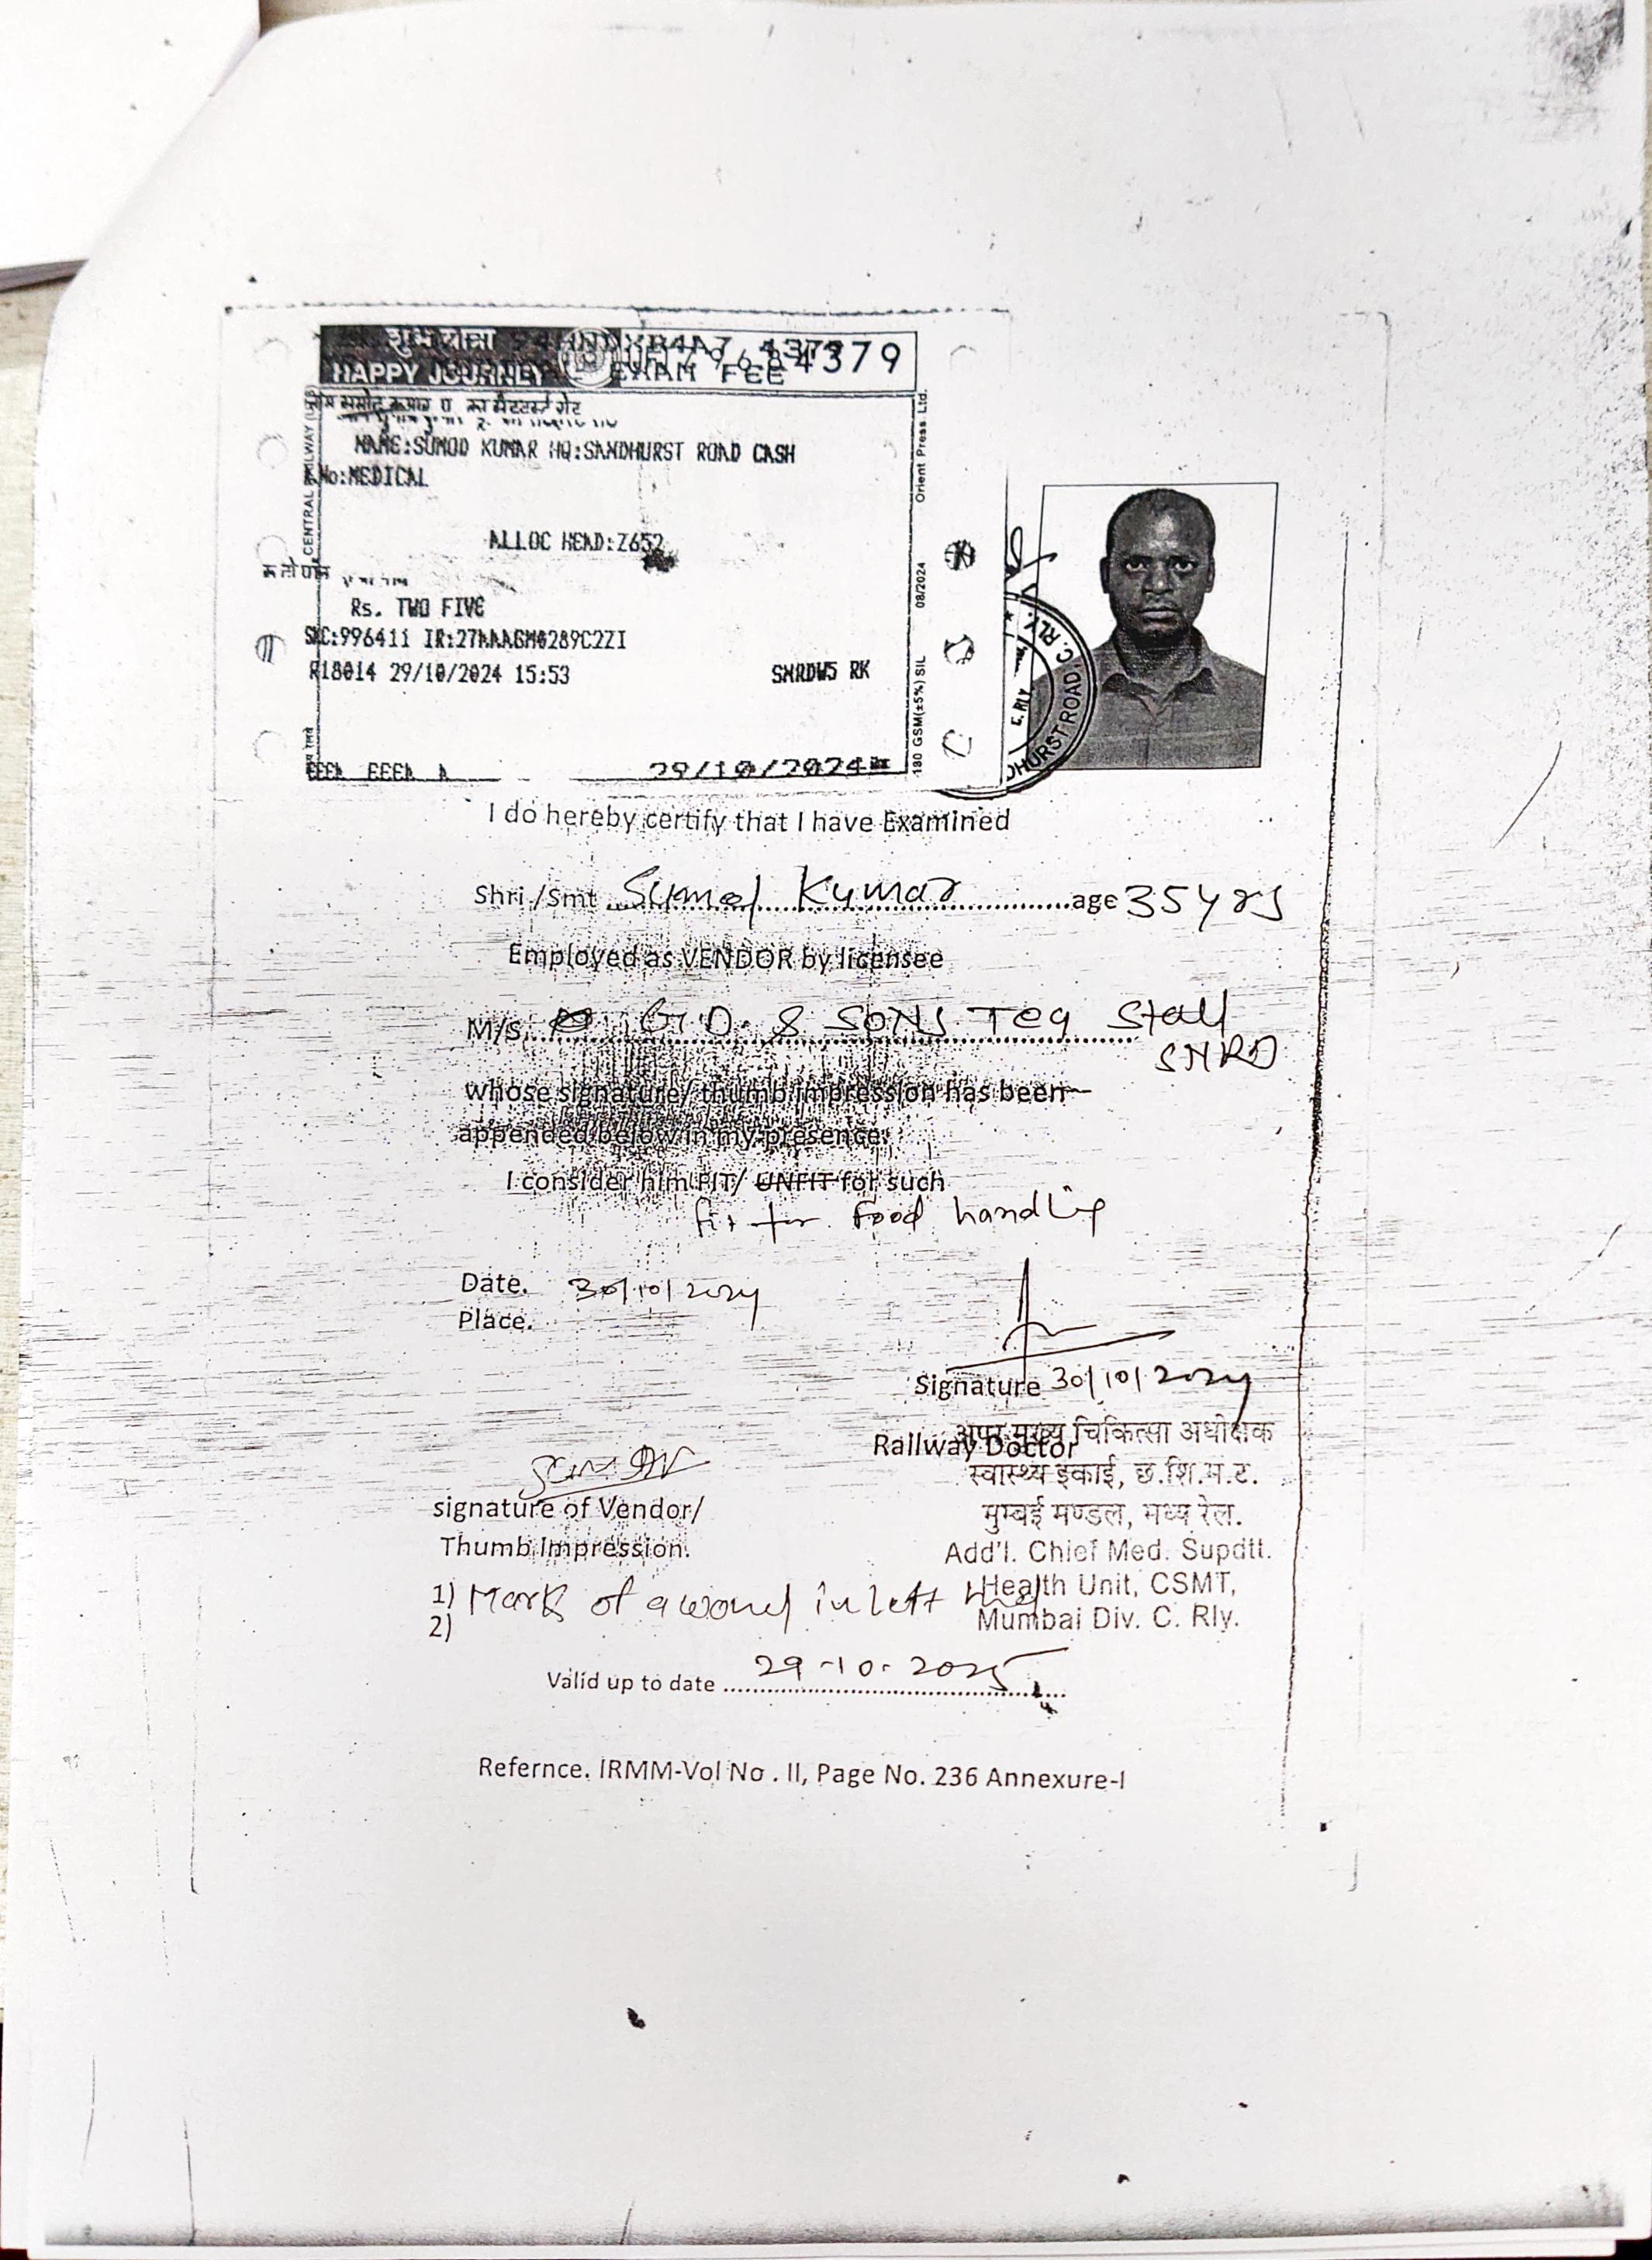 शुभ यात्रा
HAPPY JOURNEY
84379
EXAM FEE
NAME:SUMOD KUMAR HQ:SANDHURST ROAD CASH
No:MEDICAL
ALLOC HEAD:Z652
Rs. TWO FIVE
SAC:996411 IR:27AAAGM0289C2ZI
R18014 29/10/2024 15:53 SNRDW5 RK
29/10/2024
CENTRAL RAILWAY
Orient Press Ltd.
08/2024
180 GSM(±5%) SIL
DHURST ROAD, C. RLY.
C. RLY
I do hereby certify that I have Examined
Shri./Smt Sumod Kumar age 35 yrs
Employed as VENDOR by licensee
M/s. G.D. & SONS Tea Stall
SNRD
whose signature/ thumb impression has been
appended below in my presence.
I consider him FIT/ UNFIT for such
fit for food handling
Date. 30/10/2024
Place.
Signature 30/10/2024
Railway Doctor
अपर मुख्य चिकित्सा अधीक्षक
स्वास्थ्य इकाई, छ.शि.म.ट.
मुम्बई मण्डल, मध्य रेल.
signature of Vendor/
Thumb Impression.
Add'l. Chief Med. Supdtt.
Health Unit, CSMT,
Mumbai Div. C. Rly.
1) Mark of a wound in left
2)
Valid up to date 29-10-2025
Refernce. IRMM-Vol No . II, Page No. 236 Annexure-I